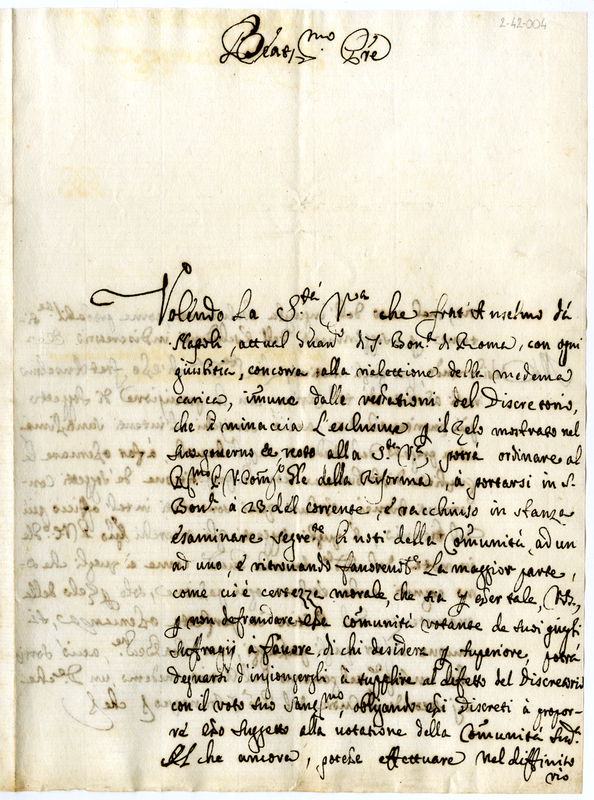 2-42-004
Beat.mo Pre
Volendo La S.tà V.a che frat'Anselmo da
Napoli, attual Guar.o di S. Bon.a di Roma, con ogni
giustitia, concorra alla rielettione della medema
carica, imune dalle vessationi del Discretorio,
che li minaccia L'esclusiva p il Zelo mostrato nel
suo governo è noto alla S.tà V.a, potrà ordinare al
P. Com.o Gle della Riforma, à portarsi in S.
Bon.a à 23 del corrente, e racchiuso in stanza
esaminare segre.te li voti della Comunità ad un
ad uno, e ritrovando favorevol.e La maggior parte,
come vi è certezza morale, che sia p esser tale,
p non defraudare essa comunità votante de suoi giusti
suffragij à favore, di chi desidera p superiore, potrà
degnarsi d'ingiongergli à supplire al difetto del Discretorio
con il voto suo Sant.mo, obligando essi Discreti à propor-
re esso suggetto alla votatione della Comunità sud.a
Il che ancora, potrebe effettuare nel diffinito
rio